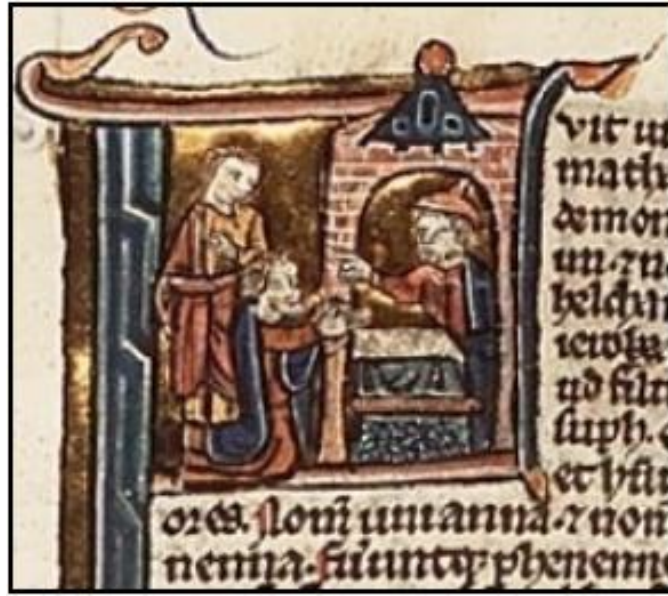 vit u
math
de mon
im. ⁊ n
helcha
ieroba
ud fili
suph. e
et h
ores. Nom̄ uni anna. ⁊ nom
nenna. fuuntq; phenenn